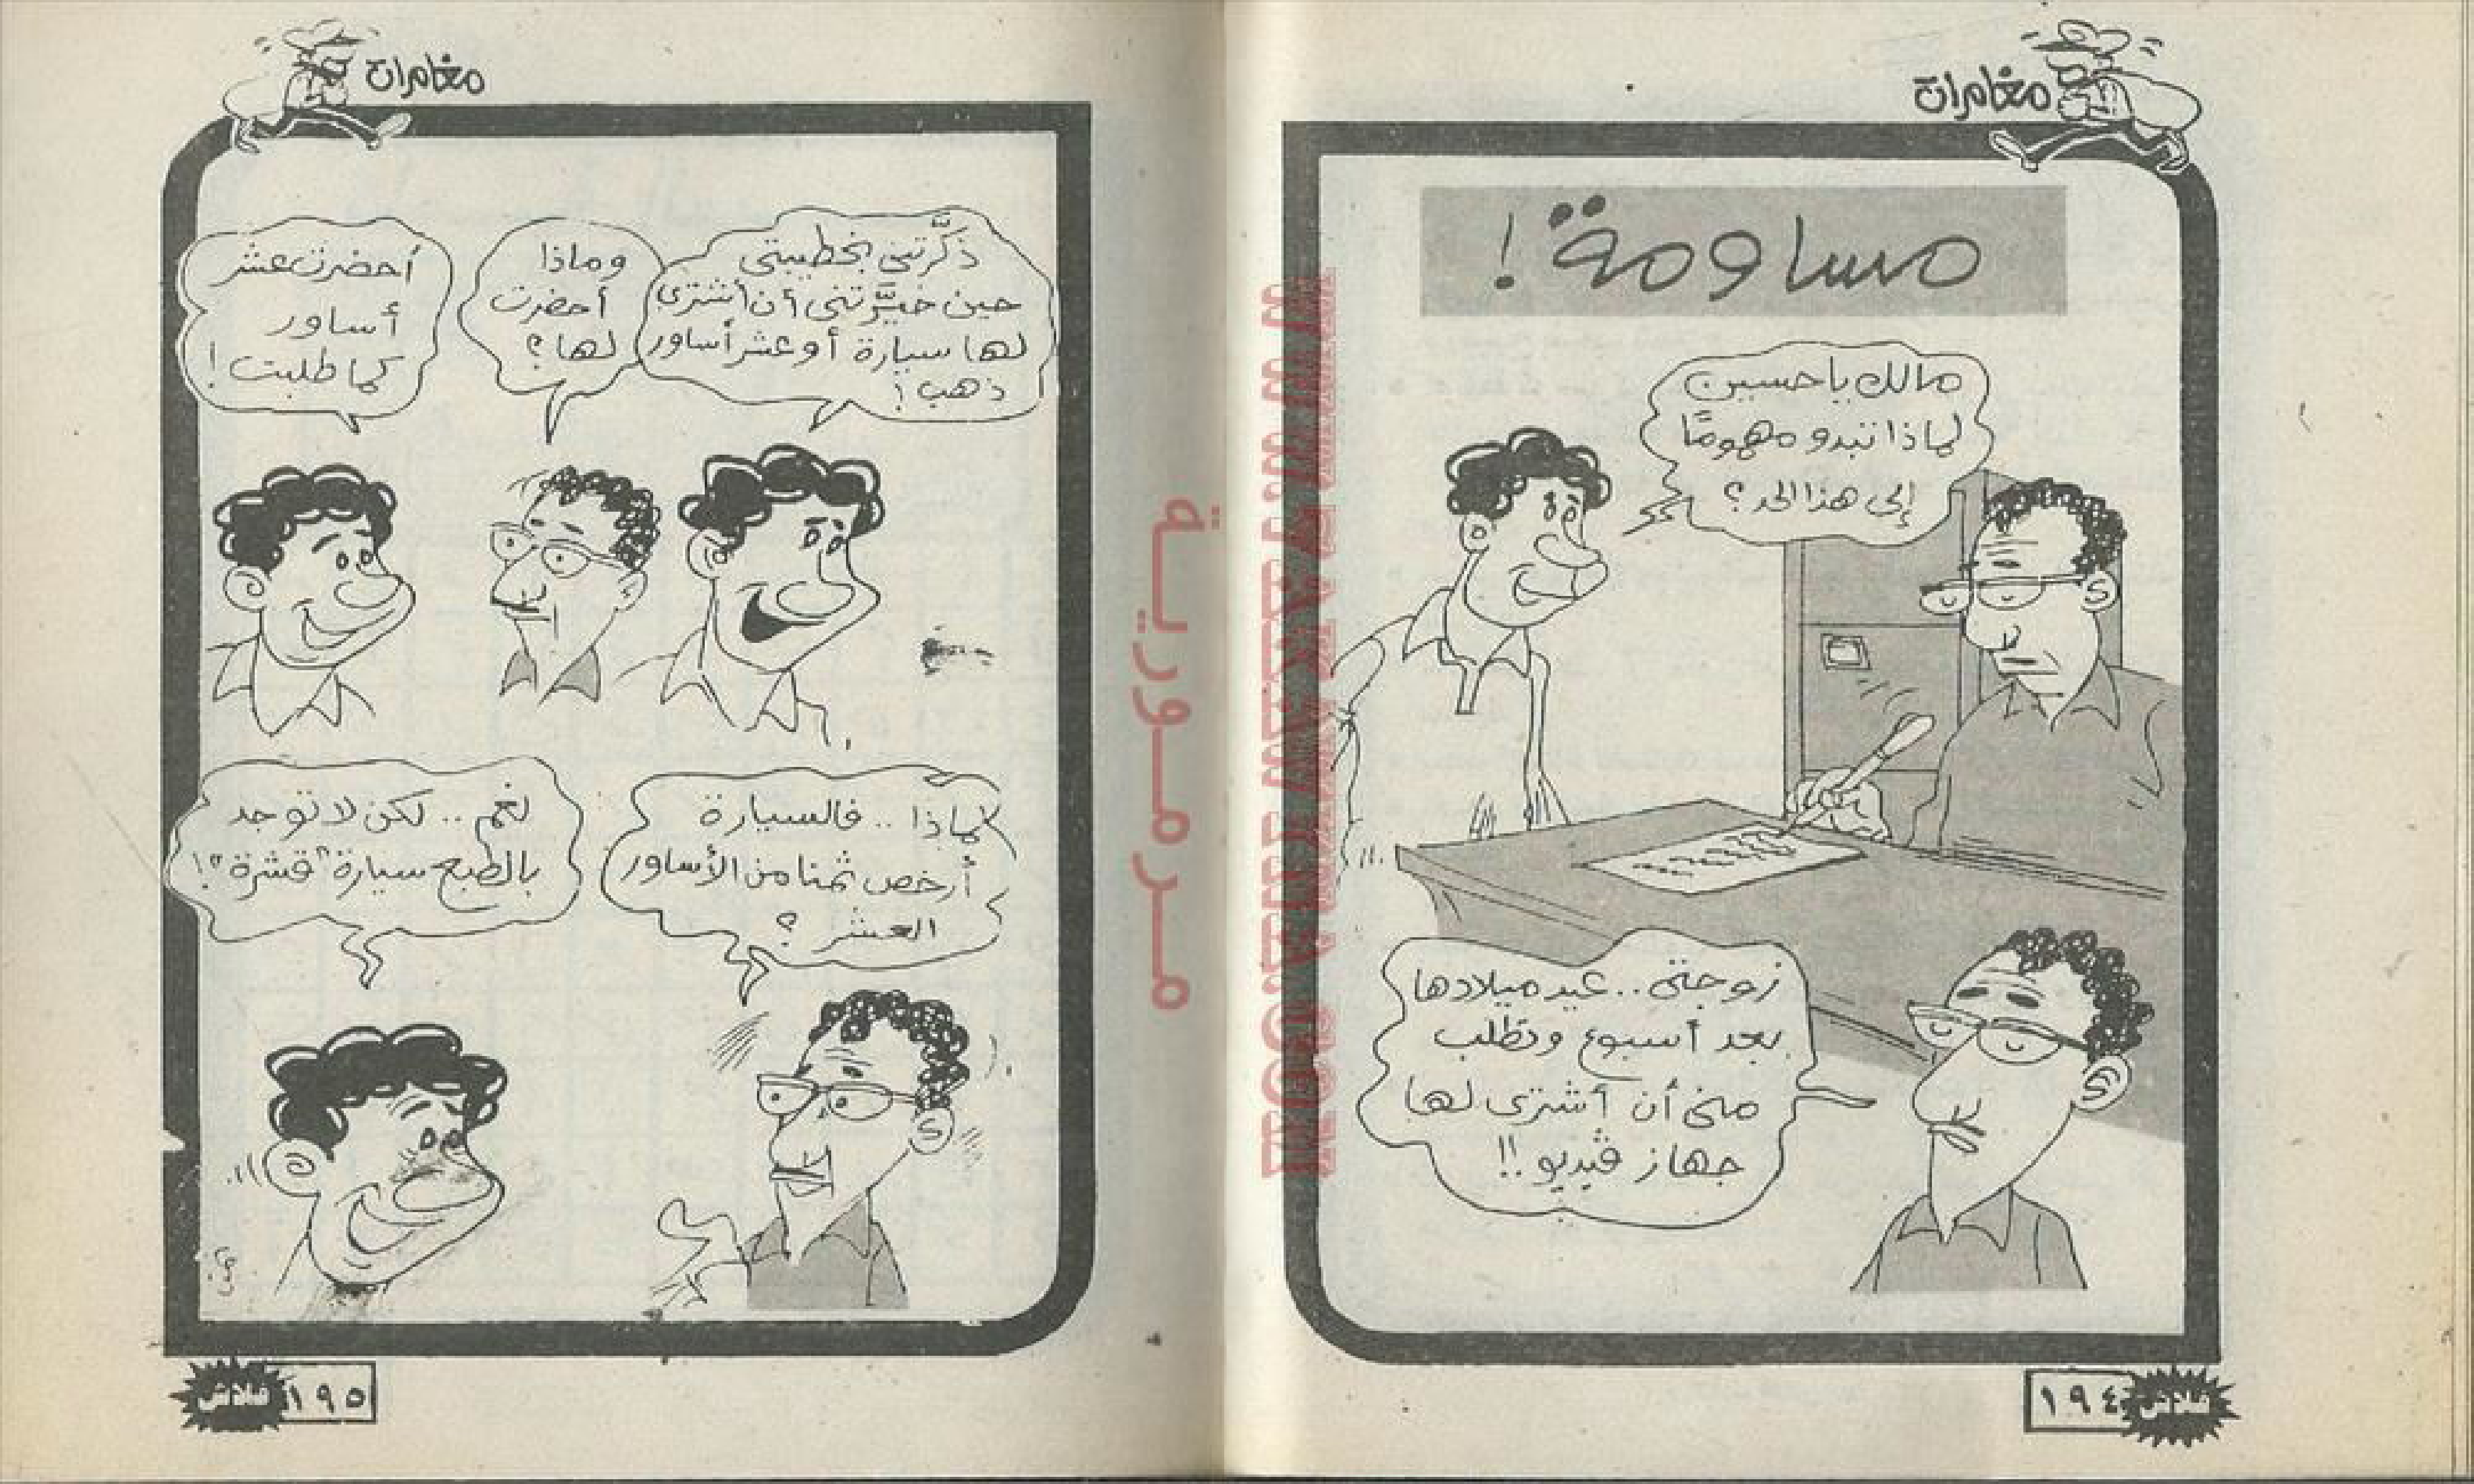 مغامرات
مساومة!
مالك يا حسين
لماذا تبدو مهمومًا
إلى هذا الحد؟
زوجتى.. عيد ميلادها
بعد أسبوع وتطلب
منى أن أشترى لها
جهاز ڤيديو!!
١٩٤
فلاش
مغامرات
ذكَّرتنى بخطيبتى
حين خيَّرتنى أن أشترى
لها سيارة أو عشر أساور
ذهب!
وماذا
أحضرت
لها؟
أحضرت عشر
أساور
كما طلبت!
لماذا.. فالسيارة
أرخص ثمنا من الأساور
العشر؟
نعم.. لكن لا توجد
بالطبع سيارة "قشرة"!
١٩٥
فلاش
مرمورية